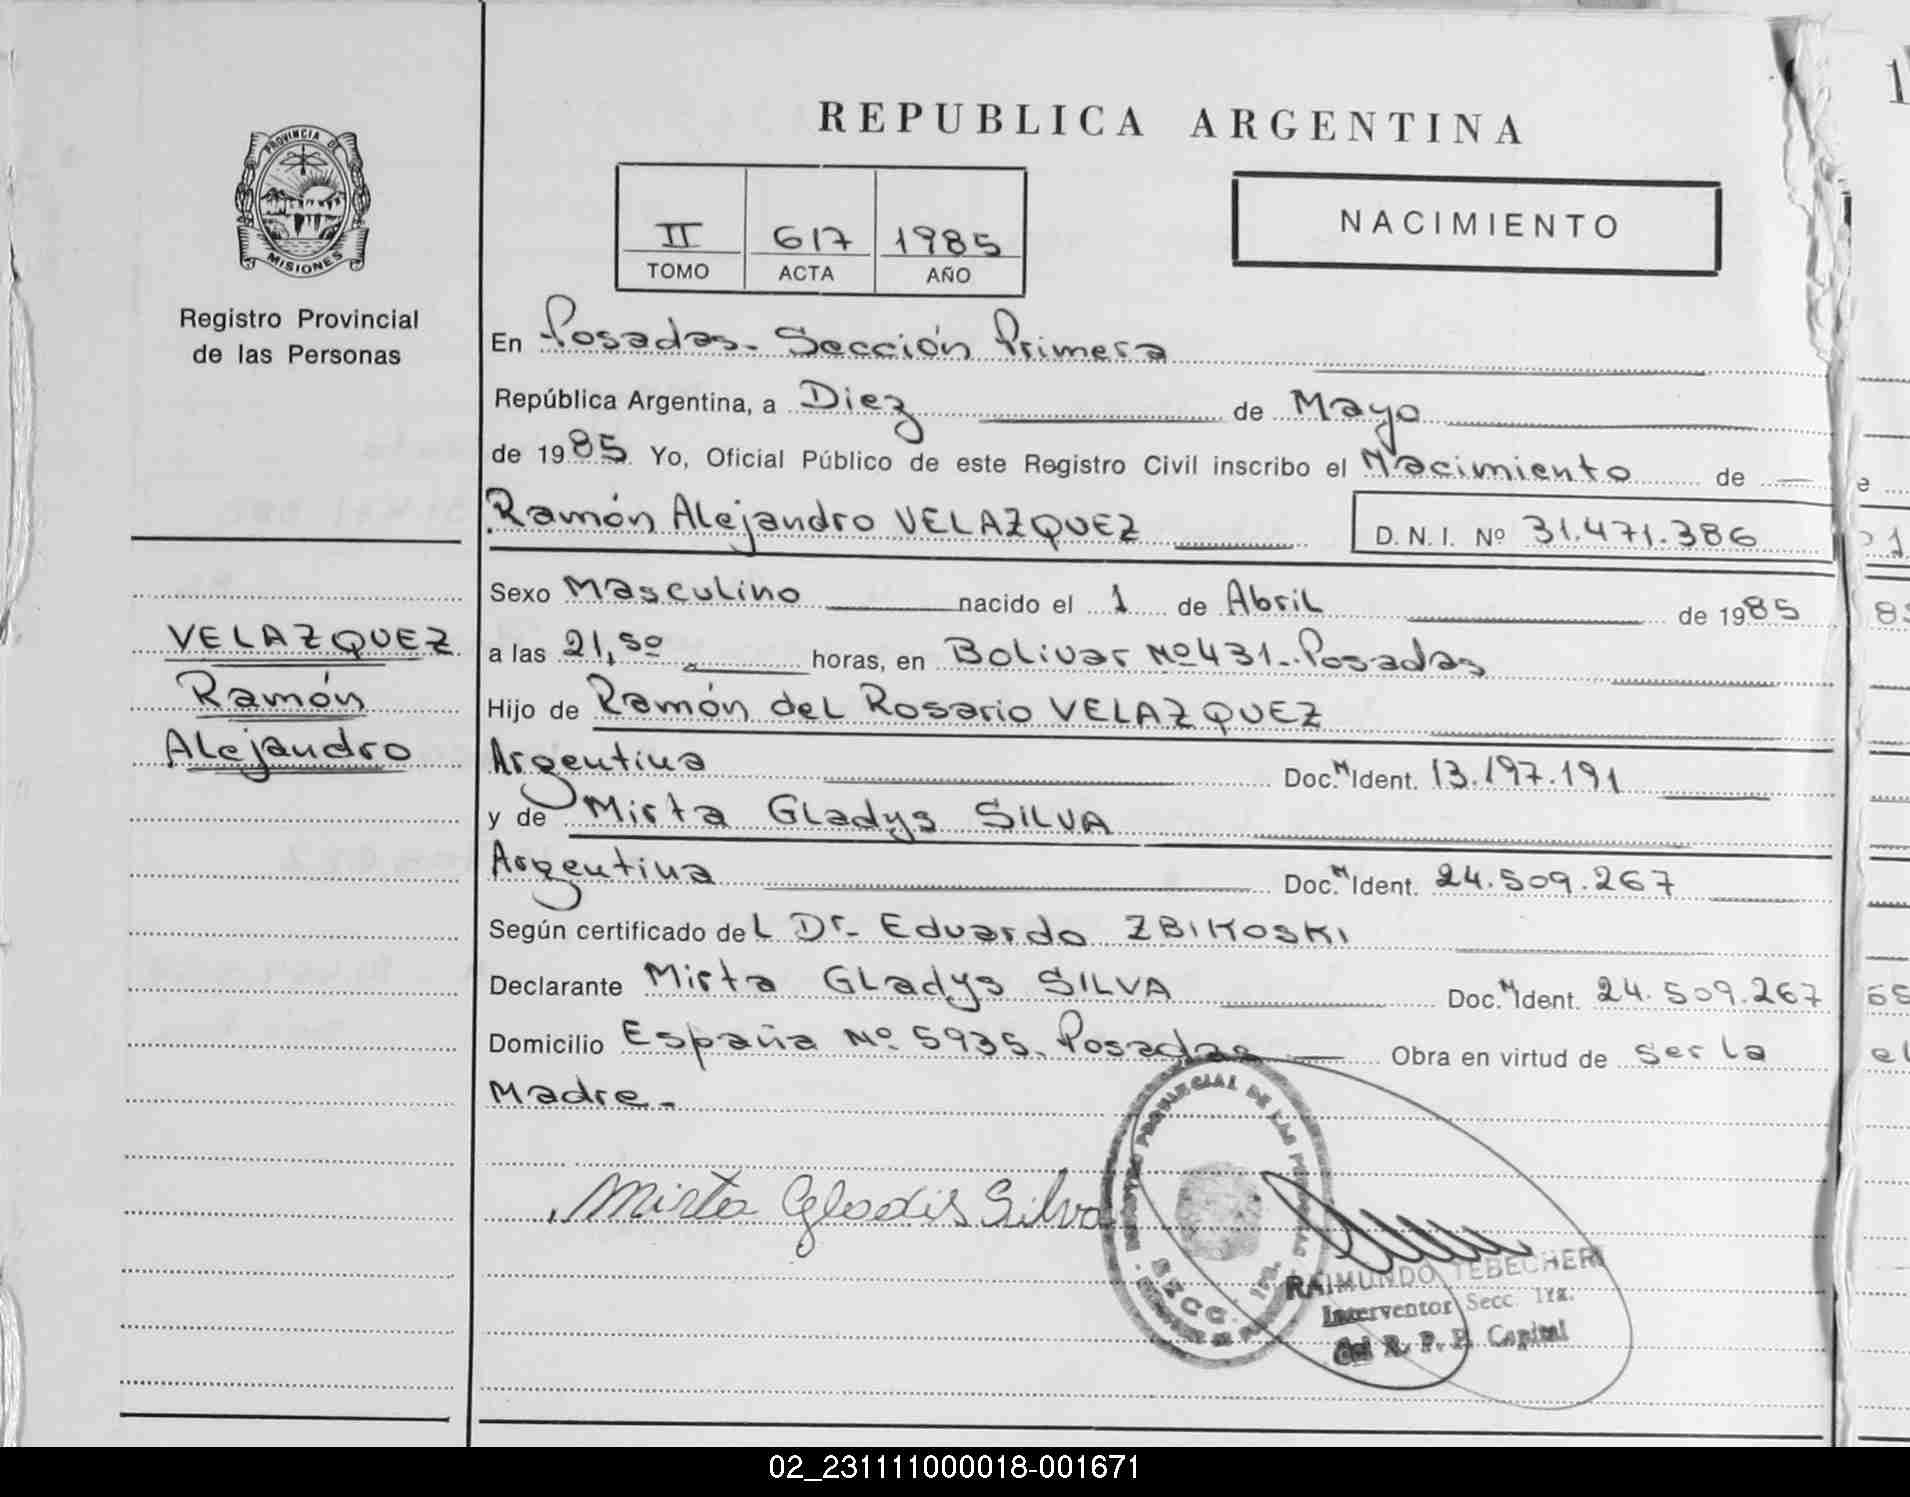 REPUBLICA ARGENTINA
PROVINCIA DE
MISIONES
Registro Provincial
de las Personas
II 617 1985
TOMO ACTA AÑO
NACIMIENTO
En Posadas- Sección Primera
República Argentina, a Diez de Mayo
de 1985 Yo, Oficial Público de este Registro Civil inscribo el Nacimiento de
Ramón Alejandro VELAZQUEZ D.N.I. Nº 31.471.386
Sexo Masculino nacido el 1 de Abril de 1985
a las 21,50 horas, en Bolivar Nº 431-Posadas
Hijo de Ramón del Rosario VELAZQUEZ
Argentina Doc.M Ident. 13.197.191
y de Mirta Gladys SILVA
Argentina Doc.M Ident. 24.509.267
Según certificado del Dr- Eduardo ZBIKOSKI
Declarante Mirta Gladys SILVA Doc.M Ident. 24.509.267
Domicilio España Nº 5935. Posadas Obra en virtud de ser la
Madre-
VELAZQUEZ
Ramón
Alejandro
Mirta Gladis Silva
REGISTRO PROVINCIAL DE LAS PERSONAS
SECC. 1ra.
RAIMUNDO TEBECHERI
Interventor Secc. 1ra.
del R. P. P. Capital
02_231111000018-001671